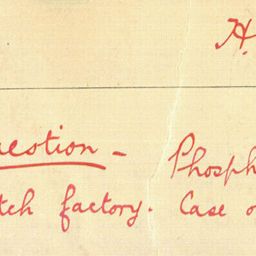 H.
uestion - Phosph
tch factory. Case o